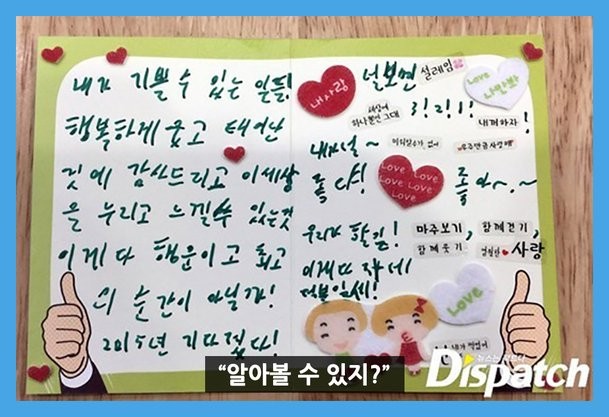 내가 기쁠수 있는 일들!
행복하게 웃고 태어난
것에 감사드리고 이세상
을 누리고 느낄수 있는것
이게 다 행운이고 최고
의 순간이 아닐까!
2015년 기다렸다!
내사랑
널보면
설레임
Love
나만봐
세상에
하나뿐인 그대
3!2!1!
내꺼하자!
내가널~
미워할수가 없어
우주만큼사랑해
좋다!
Love Love
Love Love
Love
좋아~.~
우리가 할일!
마주보기, 함께걷기,
함께 웃기
영원한
사랑
이게다 자네
덕분일세!
LOVE
내가 찍었어
“알아볼 수 있지?”
뉴스는 팩트다
Dispatch